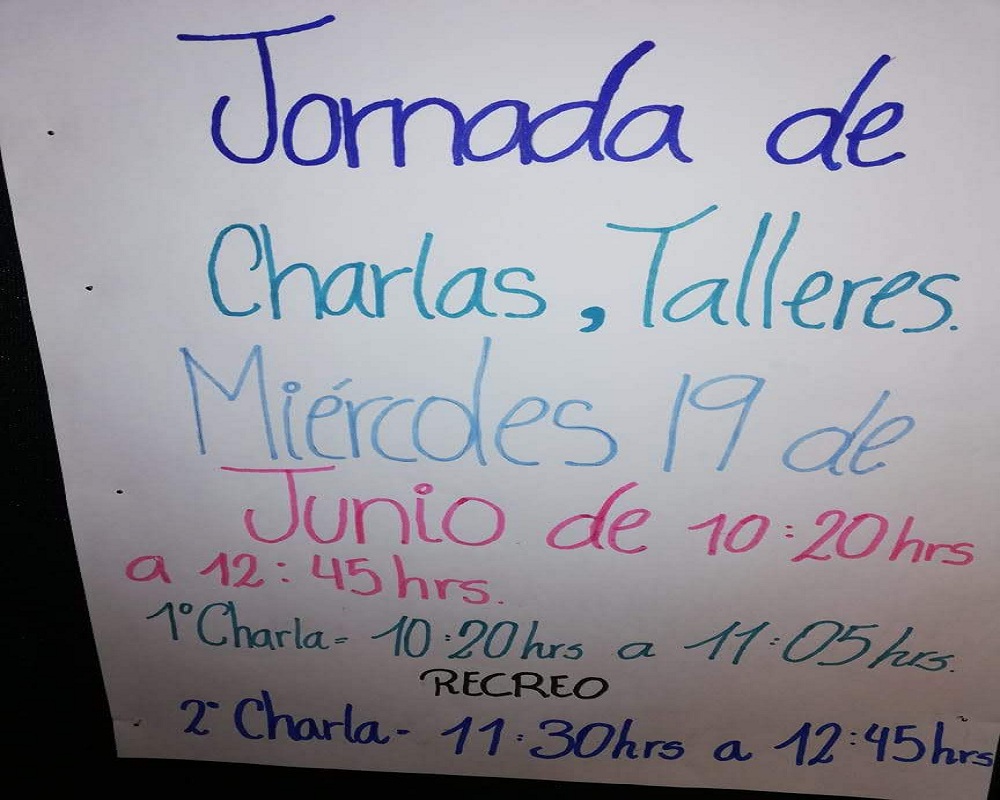 Jornada de
Charlas, Talleres.
Miércoles 19 de
Junio de 10:20hrs
a 12:45hrs.
1° Charla= 10:20hrs a 11:05hrs.
RECREO
2° Charla- 11:30hrs a 12:45hrs